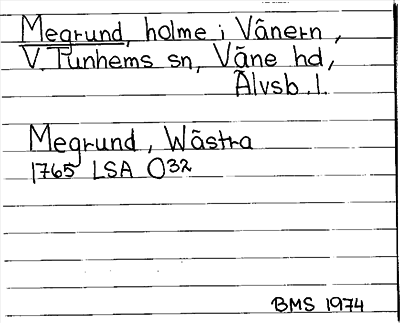 Megrund, holme i Vänern,
V. Tunhems sn, Väne hd,
Älvsb. l.
Megrund, Wästra
1765 LSA O32
BMS 1974